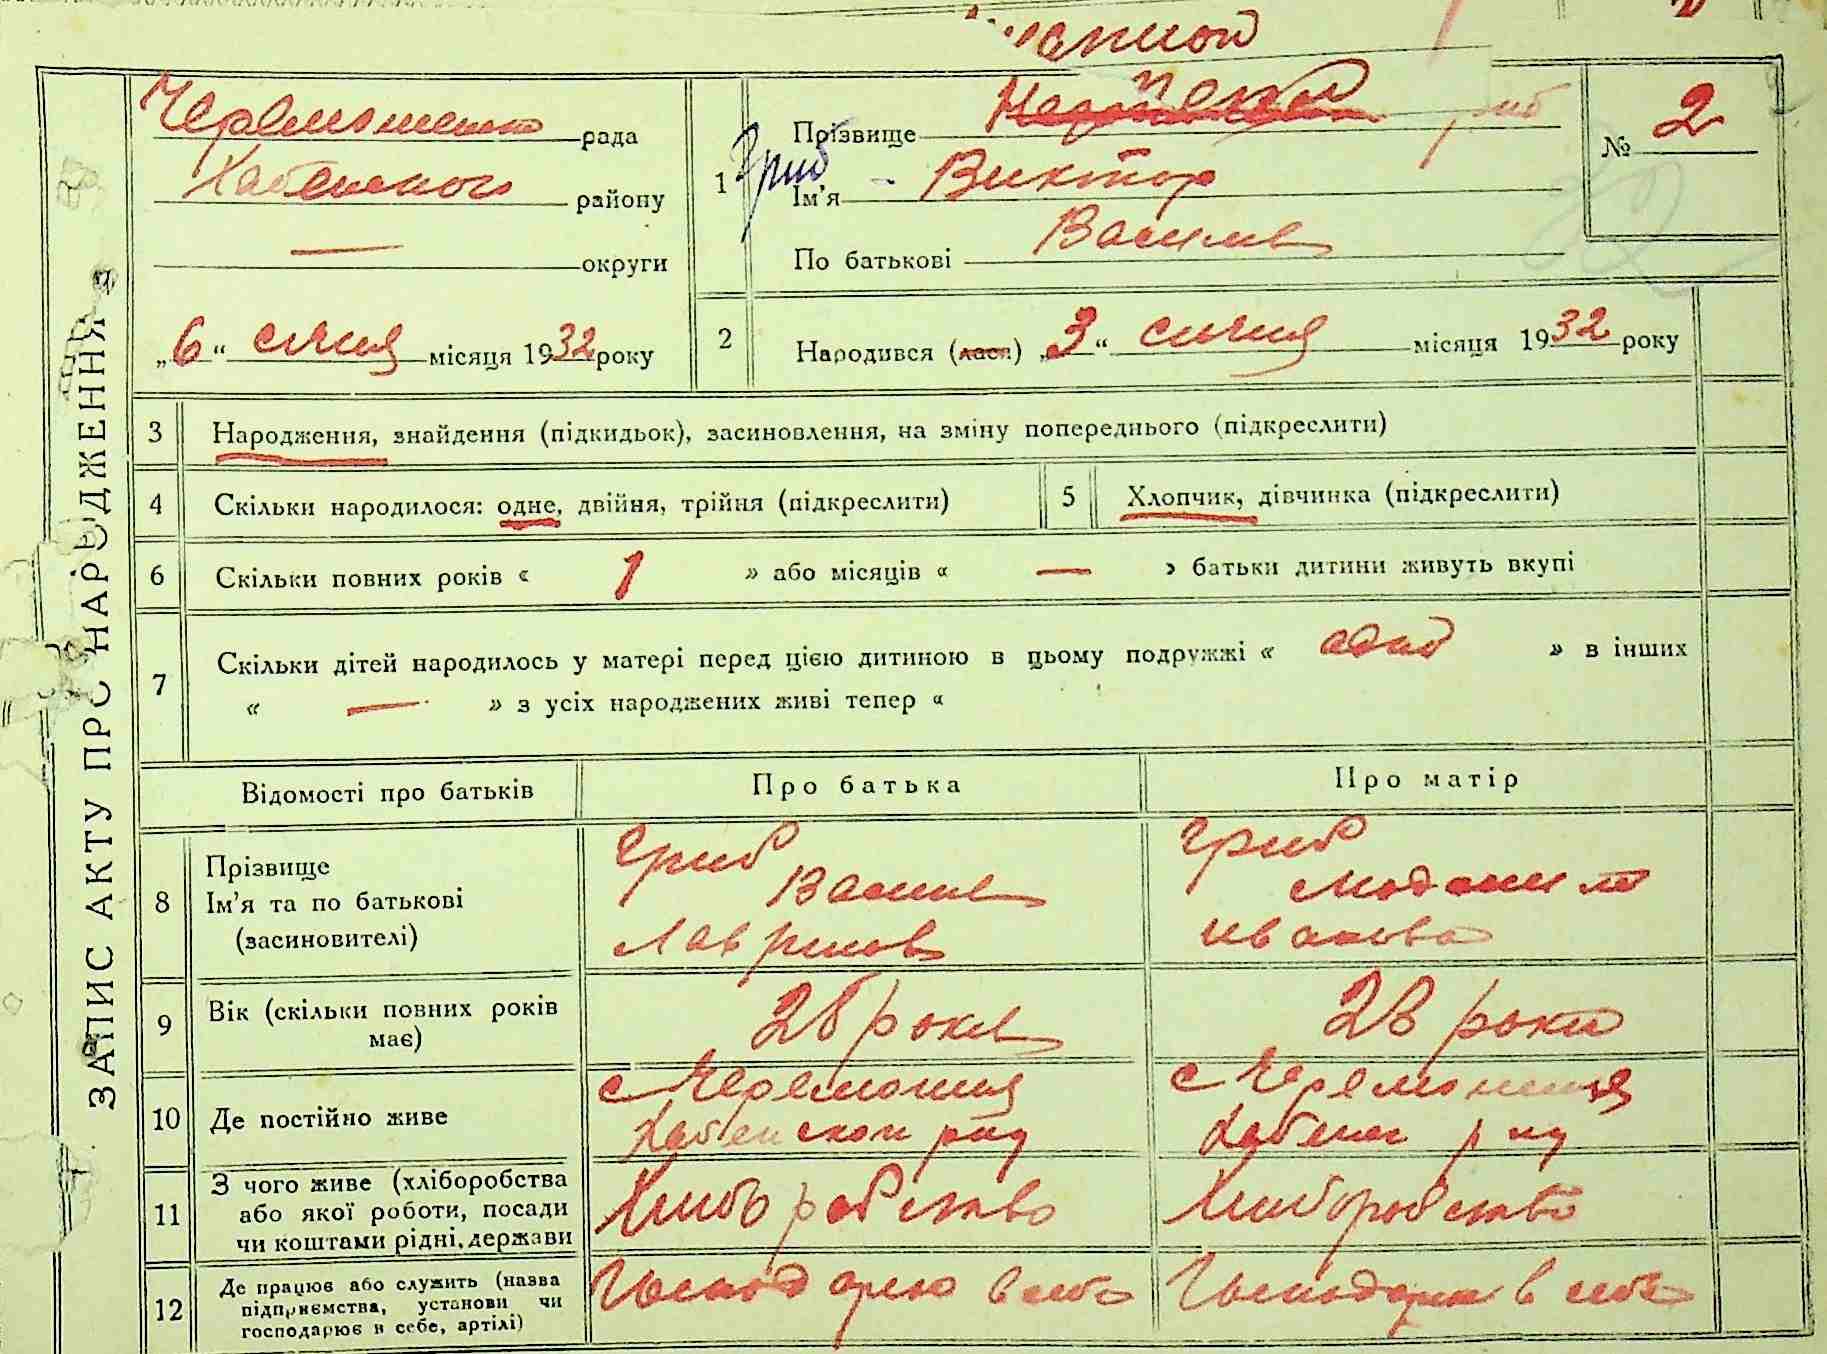 ЗАПИС АКТУ ПРО НАРОДЖЕННЯ
рада
Хабенского району
— округи
„6“ січня місяця 1932 року
1
Гриб
Прізвище Гриб
Ім'я Виктор
По батькові Васили
№ 2
2
Народився (лася) „3“ січня місяця 1932 року
3 Народження, знайдення (підкидьок), засиновлення, на зміну попереднього (підкреслити)
4 Скільки народилося: одне, двійня, трійня (підкреслити)
5 Хлопчик, дівчинка (підкреслити)
6 Скільки повних років « 1 » або місяців « — » батьки дитини живуть вкупі
7 Скільки дітей народилось у матері перед цією дитиною в цьому подружжі « один » в інших
« — » з усіх народжених живі тепер «
Відомості про батьків Про батька Про матір
8 Прізвище
Ім'я та по батькові
(засиновителі)
Гриб
Васил
Лавринов
Гриб
Иванова
9 Вік (скільки повних років
має)
10 Де постійно живе
с Черемошня
Хабенског р-ну
с Черемошня
Хабенск р-ну
11 З чого живе (хліборобства
або якої роботи, посади
чи коштами рідні, держави
Хліборобство
Хліборобство
12 Де працює або служить (назва
підприємства, установи чи
господарює в себе, артілі)
Господарює в себе
Господарює в себе